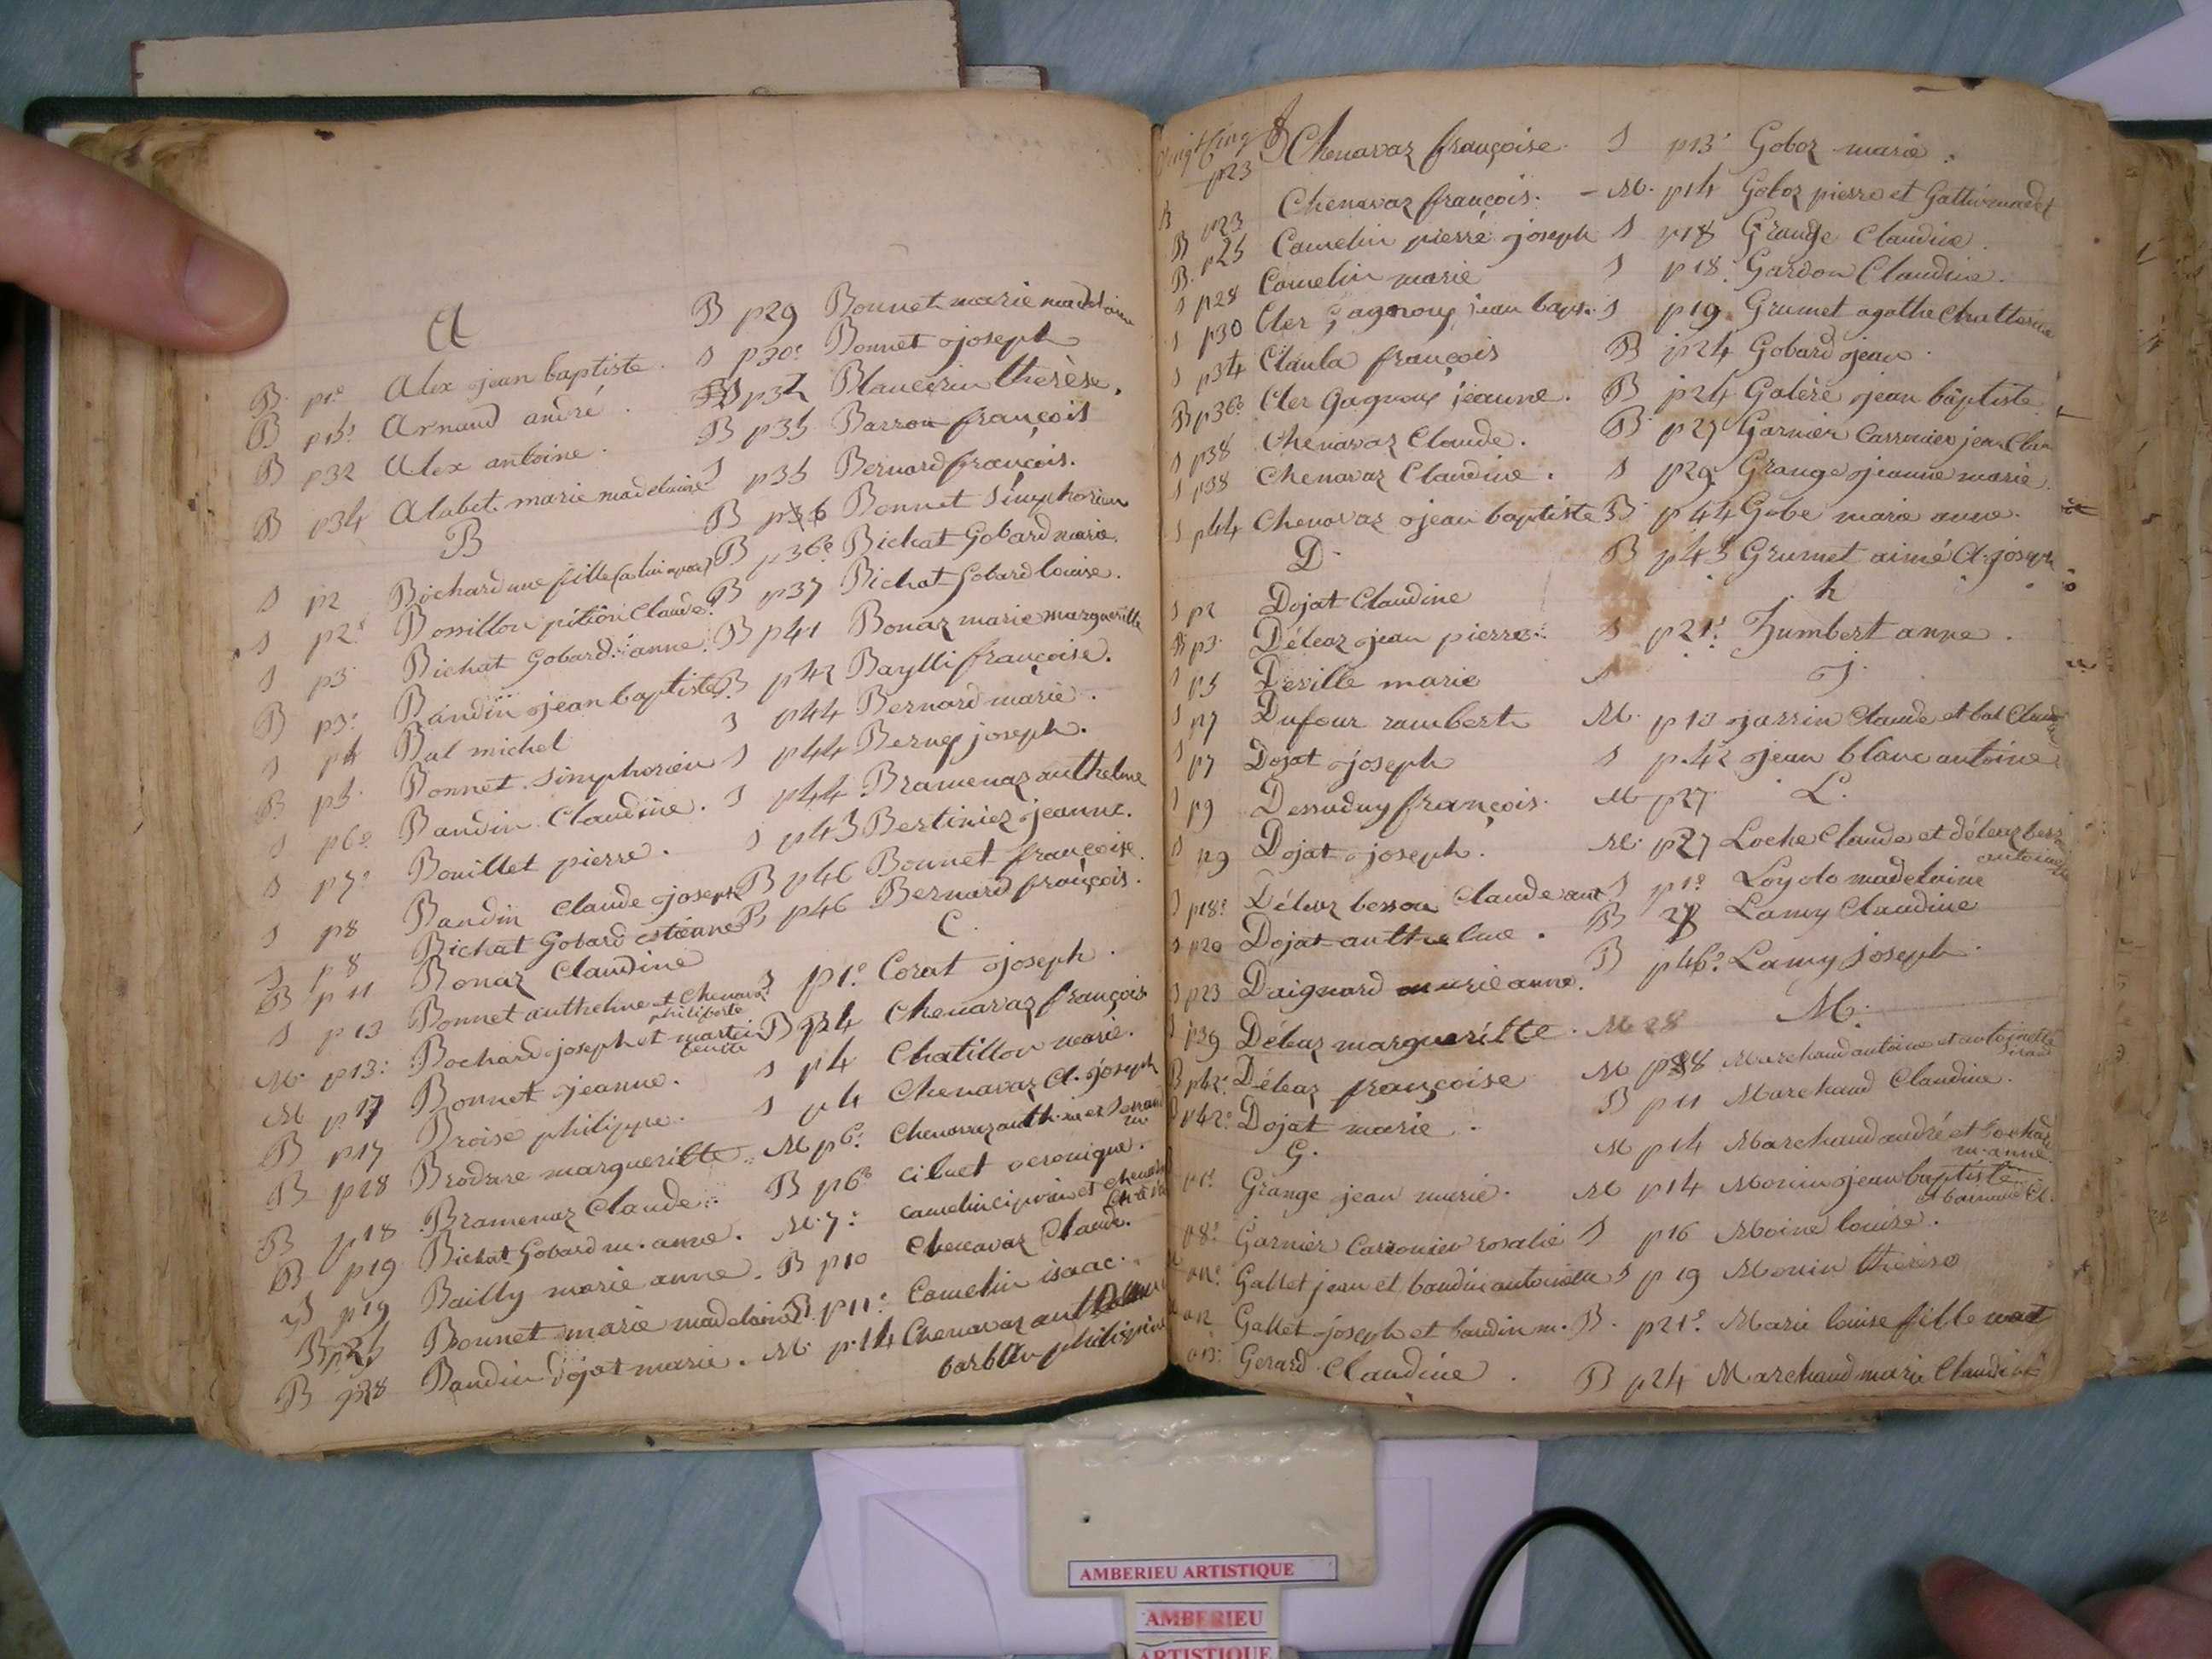 A
B p1º Alex jean baptiste.
B p15º Arnaud andré.
B p32 Alex antoine.
B p34 Alabet marie madelaine
B
S p2 Bochard une fille
S p2º Bossillon pition Claude.
S p3 Bichat Gobard anne.
B p3º Baudin jean baptiste
S p4 Bal michel
B p5 Bonnet Simphorien
S p6º Baudin Claudine.
S p7º Bouillet pierre.
S p8 Baudin Claude joseph
S p8 Bichat Gobard estienne
B p11 Bonaz Claudine
S p13 Bonnet anthelme et Chenavaz
philiberte
M p13º Bochard joseph et martin
benite
M p17 Bonnet jeanne.
B p17 Broise philippe.
B p18 Brodare margueritte.
B p18 Bramenaz Claude.
B p19 Bichat Gobard m. anne.
B p19 Bailly marie anne.
B p25 Bonnet marie madelaine
B p28 Baudin dojat marie.
B p29 Bonnet marie madelaine
S p30º Bonnet joseph
p32 Blancerin therèse.
B p35 Barron françois
S p35 Bernard françois.
B p36 Bonnet Simphorien
B p36º Bichat Gobard marie.
B p37 Bichat Gobard louise.
B p41 Bonaz marie margueritte
B p42 Baylli françoise.
S p44 Bernard marie.
S p44 Berney joseph.
S p44 Bramenaz anthelme
S p45 Bertinier jeanne.
B p46 Bonnet françoise.
B p46 Bernard françois.
C.
S p1º Corat joseph.
B p4 Chenavaz françois
S p4 Chatillon marie.
S p4 Chenavaz Cl. joseph
M p6º Chenavaz anth
B p6º Cibuet veronique.
M. 7º Camelin ciprien et Chenavaz
B p10 Chenavaz Claude.
B p11º Camelin isaac.
M. p.14 Chenavaz anthelme
philipine
p23 Chenavaz françoise.
B p23 Chenavaz françois.
B p25 Camelin pierre joseph
B. p28 Camelin marie
S p30 Cler Gagnoux jean bapt.
S p34 Claula françois
B p36º Cler Gagnoux jeanne.
S p38 Chenavaz Claude.
S p38 Chenavaz Claudine.
S p44 Chenavaz jean baptiste
D.
S p2 Dojat Claudine
B p3 Déleaz jean pierre
S p5 Deville marie
S p7 Dufour rambert
S p7 Dojat joseph
S p9 Dessuduy françois.
S p9 Dojat joseph.
S p18º Déleaz besson Claude ant
S p20 Dojat anthelme.
S p23 Daignard marie anne.
S p39 Déleaz margueritte.
B p42º Déleaz françoise
p42º Dojat marie.
G.
p1º Grange jean marie.
p8º Garnier Carronier rosalie
Gallet jean et baudin antoinette
Gallet joseph et baudin m.
Gerard Claudine.
S p13º Goboz marie.
M. p14 Goboz pierre et
S p18 Grange Claudine.
S p18º Gardon Claudine.
S p19 Grumet agathe Chatterine
B p24 Gobard jean.
B p24 Galère jean baptiste
B p27 Garnier Carronier jean Clau
S p29 Grange jeanne marie.
B p44 Gobe marie anne.
B p45 Grumet aimé Cl. joseph
h
S p21º humbert anne.
S J
M. p10 jassin Claude et bal Claud
S p.42 jean blanc antoine
M p27 L.
M. p27 Loche Claude et déleaz bess
antoinette
S p1º Loyolo madelaine
B 28 Lamy Claudine
B p46º Lamy joseph.
M 28 M.
M p38 Marchand antoine et antoinette
B p11 Marchand Claudine.
M p14 Marchand andré et bochard
m. anne.
M p14 Monin jean baptiste
S p16 Moine louise.
S p19 Monin thérèse
B. p21º Marie louise fille nat
B p24 Marchand marie Claudine
AMBERIEU ARTISTIQUE
AMBERIEU
ARTISTIQUE